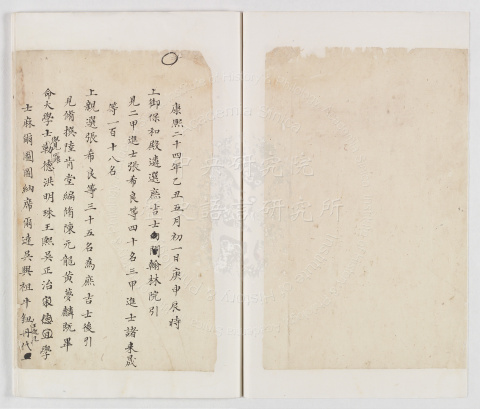 康熙二十四年乙丑五月初一日庚申辰時
上御保和殿遴選庶吉士翰林院引
見二甲進士張希良等四十名三甲進士諸來晟
等一百十八名
上親選張希良等三十五名為庶吉士後引
見脩撰陸肯堂編脩陳元龍黃夢麟既畢
命大學士覺羅勒德洪明珠王熙吳正治宋德宜學
士麻爾圖圖納席爾達吳興祖牛鈕
中央研究院
歷史語言研究所